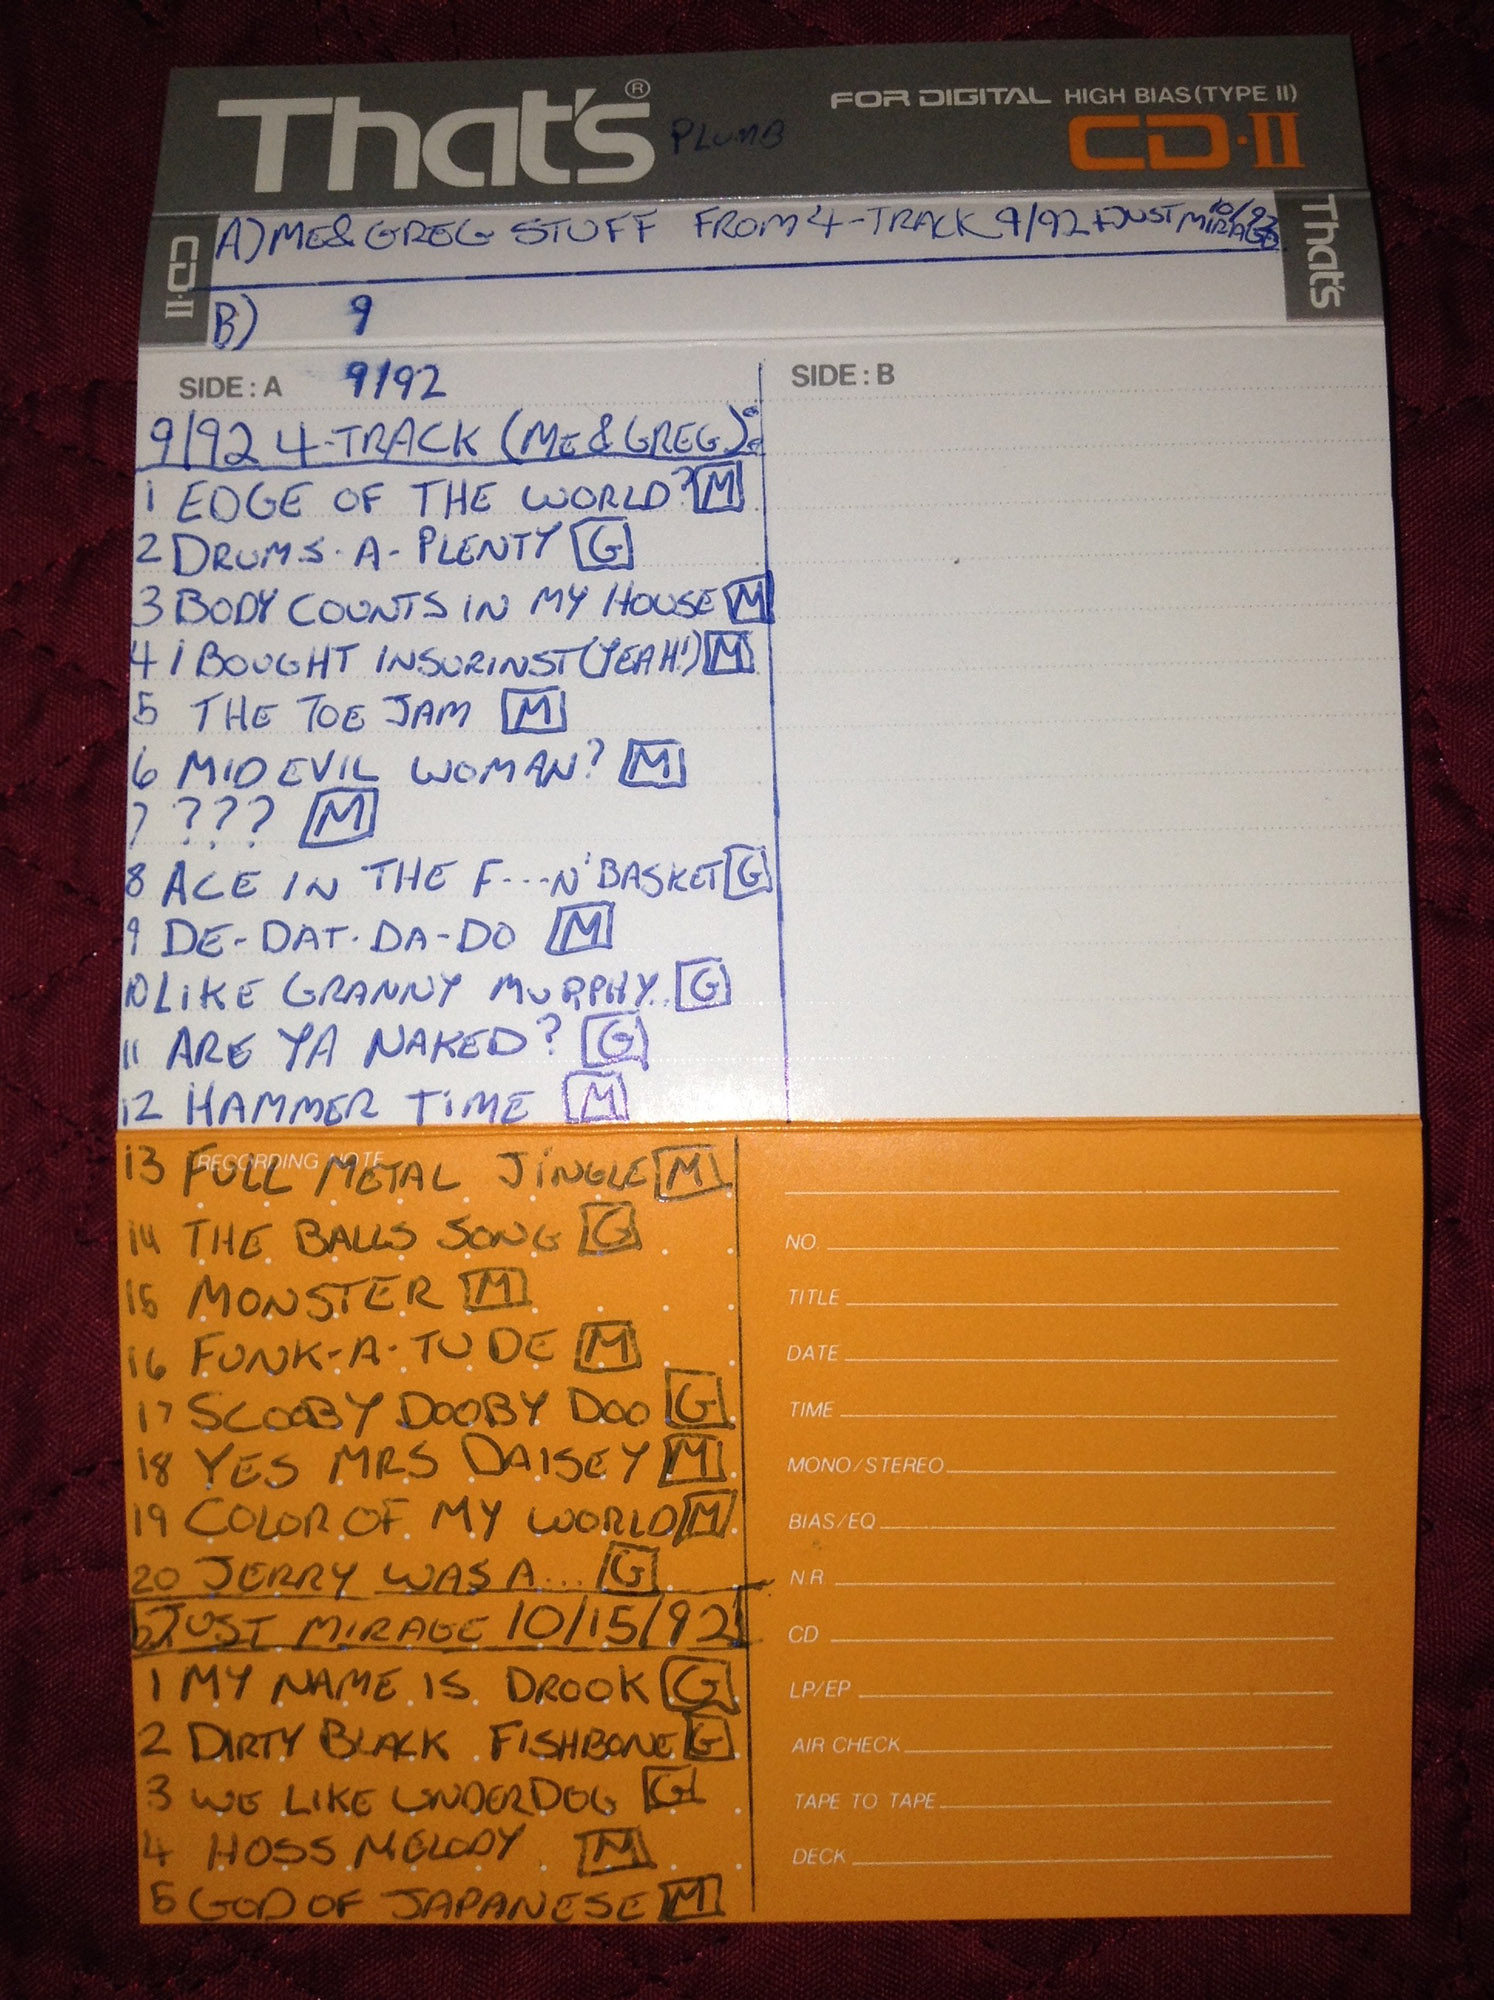 That's® PLUMB FOR DIGITAL HIGH BIAS (TYPE II)
CD·II
CD·II A) ME & GREG STUFF FROM 4-TRACK 9/92 + JUST MIRAGE 10/92 That's
B) 9
SIDE : A 9/92 SIDE : B
9/92 4-TRACK (ME & GREG):
1 EDGE OF THE WORLD? M
2 DRUMS-A-PLENTY G
3 BODY COUNTS IN MY HOUSE M
4 I BOUGHT INSURINST (YEAH!) M
5 THE TOE JAM M
6 MID EVIL WOMAN? M
7 ??? M
8 ACE IN THE F---N' BASKET G
9 DE-DAT-DA-DO M
10 LIKE GRANNY MURPHY.. G
11 ARE YA NAKED? G
12 HAMMER TIME M
RECORDING NOTE
13 FULL METAL JINGLE M
14 THE BALLS SONG G
NO.
15 MONSTER M
TITLE
16 FUNK-A-TUDE M
DATE
17 SCOOBY DOOBY DOO G
TIME
18 YES MRS DAISEY M
MONO/STEREO
19 COLOR OF MY WORLD M
BIAS/EQ
20 JERRY WAS A... G
NR
JUST MIRAGE 10/15/92
CD
1 MY NAME IS DROOK G
LP/EP
2 DIRTY BLACK FISHBONE G
AIR CHECK
3 WE LIKE UNDERDOG G
TAPE TO TAPE
4 HOSS MELODY M
DECK
5 GOD OF JAPANESE M